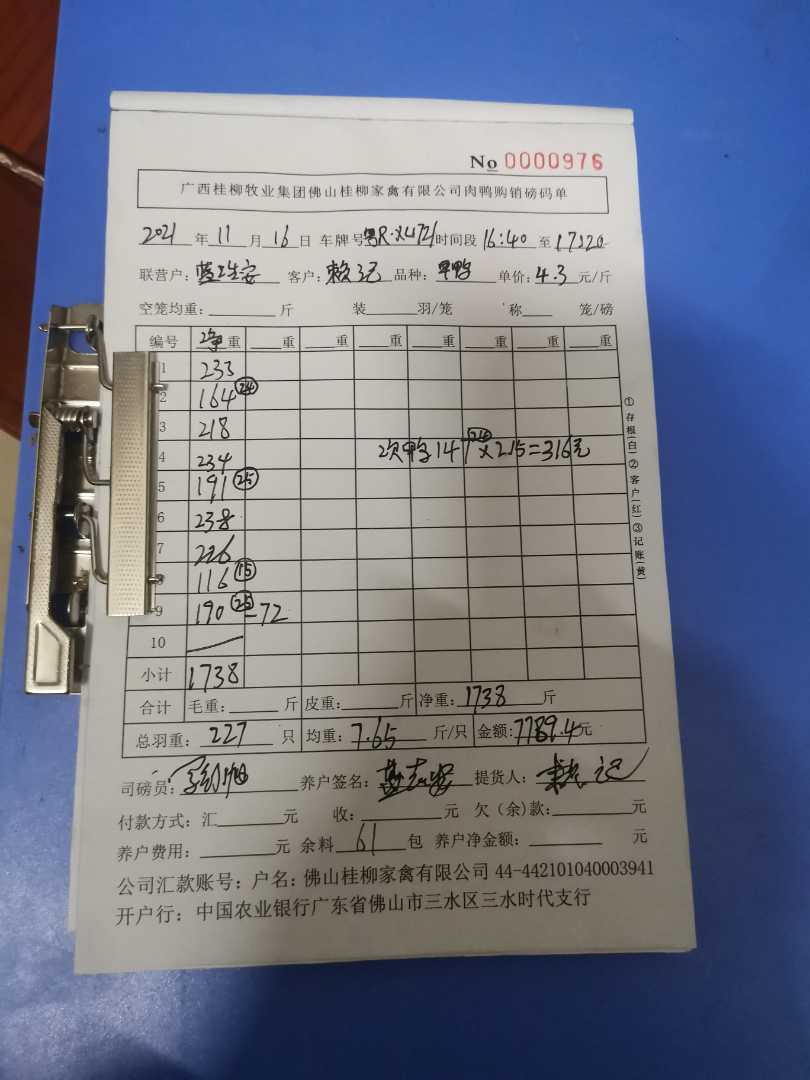 No 0000976
广西桂柳牧业集团佛山桂柳家禽有限公司肉鸭购销磅码单
2021 年 11 月 16 日 车牌号 粤R·X4721 时间段 16:40 至 17:20
联营户: 客户: 赖记 品种: 单价: 4.3 元/斤
空笼均重: 斤 装 羽/笼 称 笼/磅
编号 净重 重 重 重 重 重 重 重
1 233
2 164 24
3 218
4 234 次鸭 14 24 × 215 = 316元
5 191 25
6 238
7 226
8 116 15
9 190 25 - 72
10
小计 1738
合计 毛重: 斤 皮重: 斤 净重: 1738 斤
总羽重: 227 只 均重: 7.65 斤/只 金额: 7789.4 元
司磅员: 养户签名: 提货人: 赖记
付款方式: 汇 元 收: 元 欠(余)款: 元
养户费用: 元 余料 61 包 养户净金额: 元
公司汇款账号: 户名: 佛山桂柳家禽有限公司 44-442101040003941
开户行: 中国农业银行广东省佛山市三水区三水时代支行
①存根(白)②客户(红)③记账(黄)